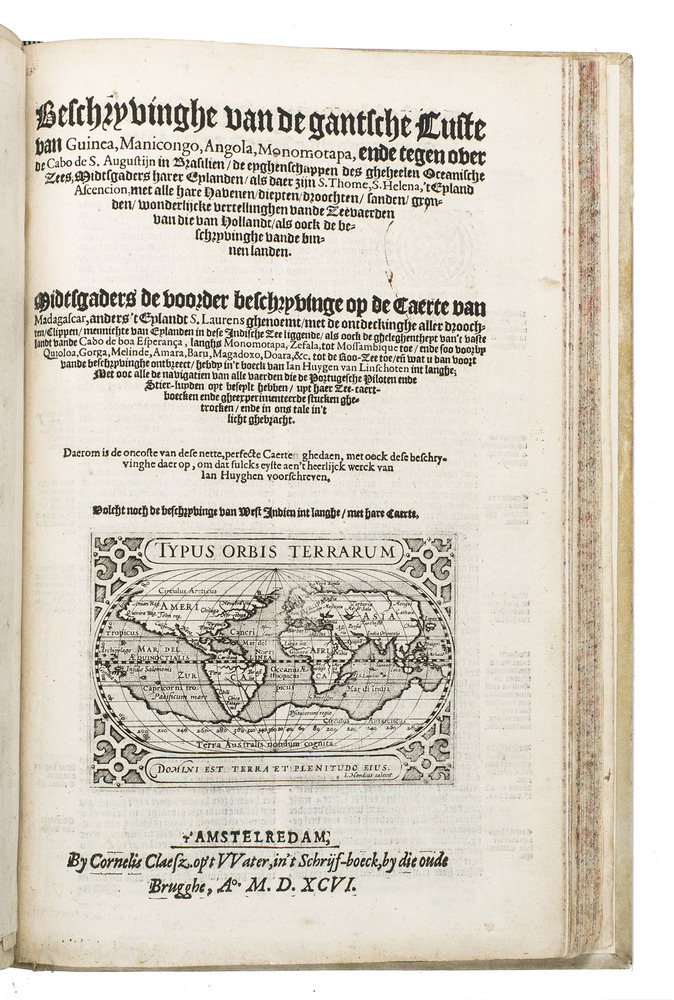 Beschryvinghe van de gantsche Custe
van Guinea, Manicongo, Angola, Monomotapa, ende tegen over
de Cabo de S. Augustijn in Brasilien / de eyghenschappen des gheheelen Oceanische
Zees, Midtsgaders harer Eylanden / als daer zijn S. Thome, S. Helena, 't Eyland
Ascencion, met alle hare Havenen / diepten / droochten / sanden / gron-
den / wonderlijcke vertellinghen vande Zeevaerden
van die van Hollandt / als oock de be-
schryvinghe vande bin-
nen landen.
Midtsgaders de voorder beschryvinge op de Caerte van
Madagascar, anders 't Eylandt S. Laurens ghenoemt / met de ontdeckinghe aller drooch-
ten / Clippen / mennichte van Eylanden in dese Indische Zee liggende / als oock de gheleghentheyt van't vaste
landt vande Cabo de boa Esperança, langhs Monomotapa, Zefala, tot Mossambique toe / ende soo voorby
Quioloa, Gorga, Melinde, Amara, Baru, Magadoxo, Doara, &c. tot de Roo-Zee toe / en wat u dan voort
vande beschryvinghe ontbreect / hebdy in't boeck van Ian Huygen van Linschoten int langhe;
Met oock alle de navigatien van alle vaerden die de Portugesche Piloten ende
Stier-luyden oyt beseylt hebben / uyt haer Zee-caert-
boecken ende gheexperimenteerde stucken ghe-
trocken / ende in ons tale in't
licht ghebracht.
Daerom is de oncoste van dese nette, perfecte Caerten ghedaen, met oock dese beschry-
vinghe daer op, om dat sulcks eyste aen't heerlijck werck van
Ian Huyghen voorschreven.
Volcht noch de beschryvinge van West Indien int langhe / met hare Caerte.
TYPUS ORBIS TERRARUM
Circulus Arcticus
AMERI
CA
ASIA
AFRI
CA
Tropicus
Cancri
MAR DEL
ZUR
Mar del
Nort
Archipelago
ÆQUINOCTIALIS
LINEA
Insulæ Salomonis
Oceanus Æ
thiopicus
Capricorni tro
picus
Pacificum mare
Mar di India
Psitacorum regio
Circulus Antarcticus
Terra Australis nondum cognita
DOMINI EST TERRA ET PLENITUDO EIUS.
I. Hondius cælavit
t'AMSTELREDAM,
By Cornelis Claesz. op't VVater, in't Schrijf-boeck, by die oude
Brugghe, Aº. M. D. XCVI.